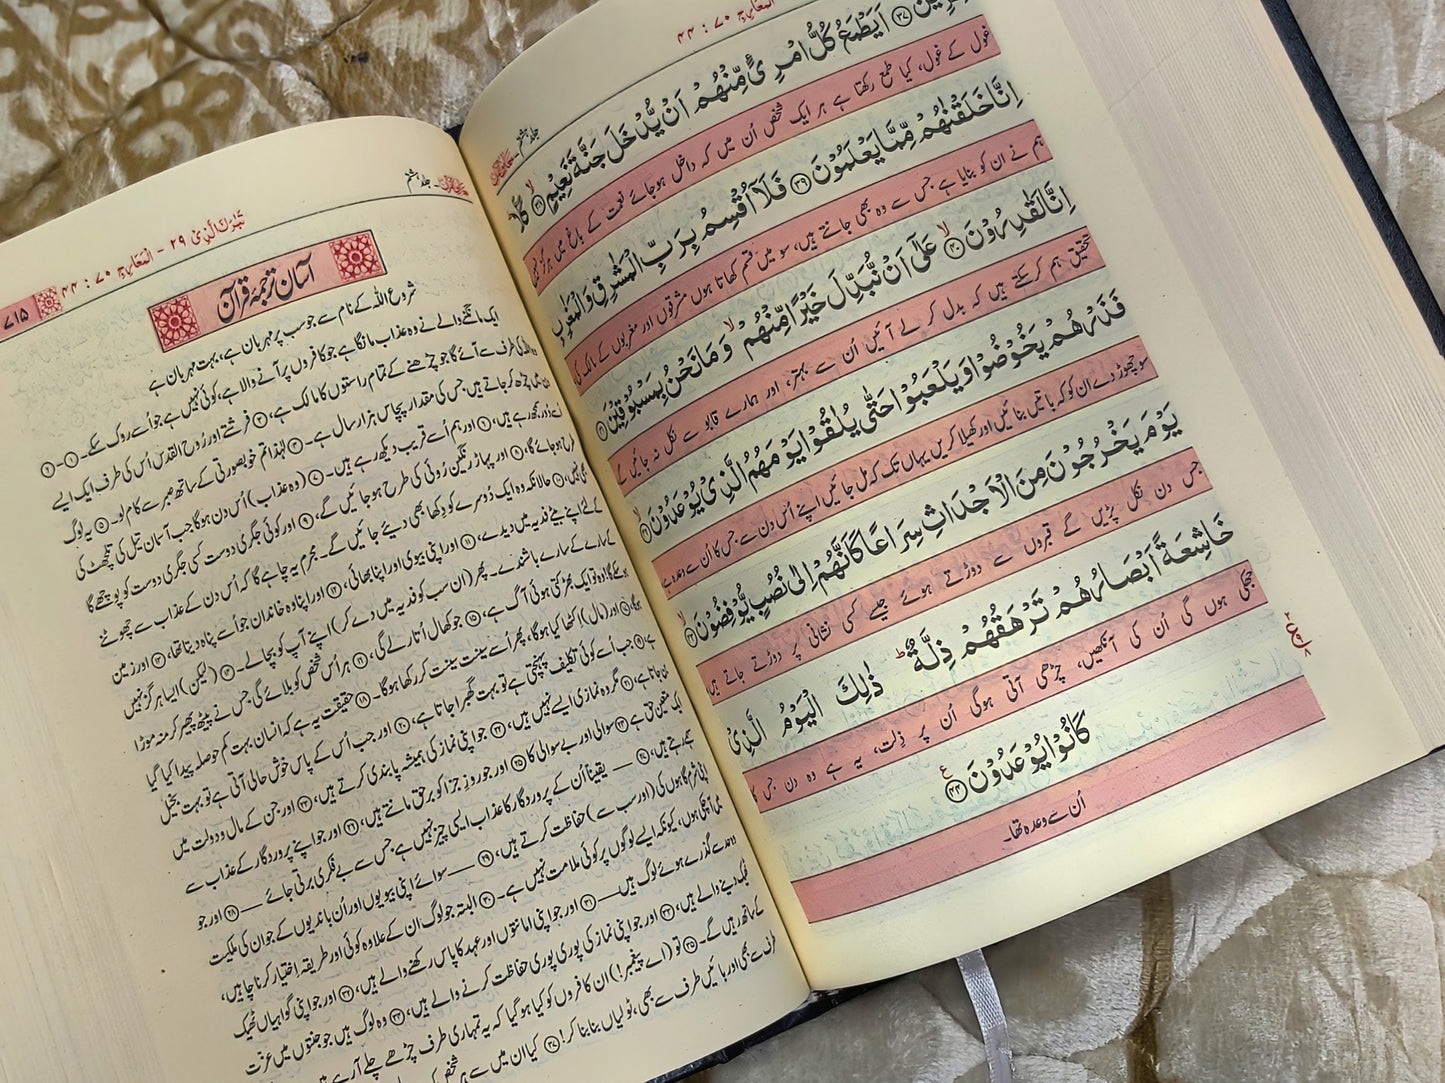 المعارج ۷۰ : ۴۴
جلد ہشتم
اَيَطْمَعُ كُلُّ امْرِئٍ مِّنْهُمْ اَنْ يُّدْخَلَ جَنَّةَ نَعِيْمٍ ۙ﴿۳۸﴾ كَلَّا ؕ
غول کے غول، کیا طمع رکھتا ہے ہر ایک شخص اُن میں کہ داخل ہوجائے نعمت کے باغ میں ہرگز نہیں
اِنَّا خَلَقْنٰهُمْ مِّمَّا يَعْلَمُوْنَ ﴿۳۹﴾ فَلَاۤ اُقْسِمُ بِرَبِّ الْمَشٰرِقِ وَالْمَغٰرِبِ
ہم نے ان کو بنایا ہے جس سے وہ بھی جانتے ہیں، سو میں قسم کھاتا ہوں مشرقوں اور مغربوں کے مالک کی
اِنَّا لَقٰدِرُوْنَ ۙ﴿۴۰﴾ عَلٰۤى اَنْ نُّبَدِّلَ خَيْرًا مِّنْهُمْ ۙ وَمَا نَحْنُ بِمَسْبُوْقِيْنَ
تحقیق ہم کرسکتے ہیں کہ بدل کر لے آئیں اُن سے بہتر، اور ہمارے قابو سے نکل نہ جائیں گے
فَذَرْهُمْ يَخُوْضُوْا وَيَلْعَبُوْا حَتّٰى يُلٰقُوْا يَوْمَهُمُ الَّذِىْ يُوْعَدُوْنَ ۙ
سو چھوڑ دے ان کو کہ باتیں بنائیں اور کھیلا کریں یہاں تک کہ مل جائیں اپنے اُس دن سے جس کا اُن سے وعدہ ہے
يَوْمَ يَخْرُجُوْنَ مِنَ الْاَجْدَاثِ سِرَاعًا كَاَنَّهُمْ اِلٰى نُصُبٍ يُّوْفِضُوْنَ ۙ
جس دن نکل پڑیں گے قبروں سے دوڑتے ہوئے جیسے کی نشانی پر دوڑتے جاتے ہیں
خَاشِعَةً اَبْصَارُهُمْ تَرْهَقُهُمْ ذِلَّةٌ ؕ ذٰلِكَ الْيَوْمُ الَّذِىْ
جھکی ہوں گی اُن کی آنکھیں، چڑھی آتی ہوگی اُن پر ذلت، یہ ہے وہ دن جس کا
كَانُوْا يُوْعَدُوْنَ
اُن سے وعدہ تھا۔
جلد ہشتم
تَبٰرَكَ الَّذِىْ ۲۹ - المعارج ۷۰ : ۴۴
۷۱۵
آسان ترجمۂ قرآن
شروع اللہ کے نام سے جو سب پر مہربان ہے، بہت مہربان ہے
ایک مانگنے والے نے وہ عذاب مانگا ہے جو کافروں پر آنے والا ہے، کوئی نہیں ہے جو اُسے روک سکے۔ ①-①
اللہ کی طرف سے آئے گا جو چڑھنے کے تمام راستوں کا مالک ہے، ③ فرشتے اور رُوح القدس اُس کی طرف ایک ایسے
دن میں چڑھ کر جاتے ہیں جس کی مقدار پچاس ہزار سال ہے۔ لہٰذا تم خوبصورتی کے ساتھ صبر سے کام لو۔ یہ لوگ
اُسے دُور سمجھ رہے ہیں، اور ہم اُسے قریب دیکھ رہے ہیں۔ (وہ عذاب) اُس دن ہوگا جب آسمان تیل کی تلچھٹ کی
طرح ہوجائے گا، اور پہاڑ رنگین رُوئی کی طرح ہوجائیں گے، اور کوئی جگری دوست کسی جگری دوست کو پوچھے گا
بھی نہیں، حالانکہ وہ ایک دُوسرے کو دِکھا بھی دیئے جائیں گے۔ مجرم یہ چاہے گا کہ اُس دن کے عذاب سے چھوٹنے
کے لئے اپنے بیٹے فدیہ میں دیدے، اور اپنی بیوی اور اپنا بھائی، اور اپنا وہ خاندان جو اُسے پناہ دیتا تھا، اور زمین
کے سارے کے سارے باشندے۔ پھر (ان سب کو فدیہ میں دے کر) اپنے آپ کو بچالے۔ (لیکن) ایسا ہرگز نہیں
ہوسکے گا! وہ تو ایک بھڑکتی ہوئی آگ ہے، جو کھال اُتار لے گی، ہر اُس شخص کو بلائے گی جس نے پیٹھ پھیر کر منہ موڑا
ہوگا، اور (مال) اکٹھا کیا ہوگا، پھر اُسے سینت سینت کر رکھا ہوگا۔ حقیقت یہ ہے کہ انسان بہت کم حوصلہ پیدا کیا گیا
ہے، جب اُسے کوئی تکلیف پہنچتی ہے تو بہت گھبرا جاتا ہے، اور جب اُس کے پاس خوش حالی آتی ہے تو بہت بخیل
بن جاتا ہے، مگر وہ نمازی ایسے نہیں ہیں، جو اپنی نماز کی ہمیشہ پابندی کرتے ہیں، اور جن کے مال و دولت میں
ایک متعین حق ہے سوالی اور بے سوالی کا اور جو روزِ جزا کو برحق مانتے ہیں، اور جو اپنے پروردگار کے عذاب سے
سہمے رہتے ہیں، — یقیناً اُن کے پروردگار کا عذاب ایسی چیز نہیں ہے جس سے بے فکری برتی جائے — اور جو
اپنی شرمگاہوں کی (اور سب سے) حفاظت کرتے ہیں، — سوائے اپنی بیویوں اور اُن باندیوں کے جو ان کی ملکیت
میں آچکی ہوں، کیونکہ ایسے لوگوں پر کوئی ملامت نہیں ہے۔ البتہ جو لوگ ان کے علاوہ کوئی اور طریقہ اختیار کرنا چاہیں،
وہ حد سے گذرے ہوئے لوگ ہیں — اور جو اپنی امانتوں اور عہد کا پاس رکھنے والے ہیں، اور جو اپنی گواہیاں ٹھیک
ٹھیک دینے والے ہیں، اور جو اپنی نماز کی پوری پوری حفاظت کرنے والے ہیں، وہ لوگ ہیں جو جنتوں میں عزت
کے ساتھ رہیں گے۔ تو (اے پیغمبر!) ان کافروں کو کیا ہوگیا کہ یہ تمہاری طرف چڑھے چلے آرہے ہیں
طرف سے بھی اور بائیں طرف سے بھی، ٹولیاں بنا بنا کر! کیا ان میں سے ہر شخص کی